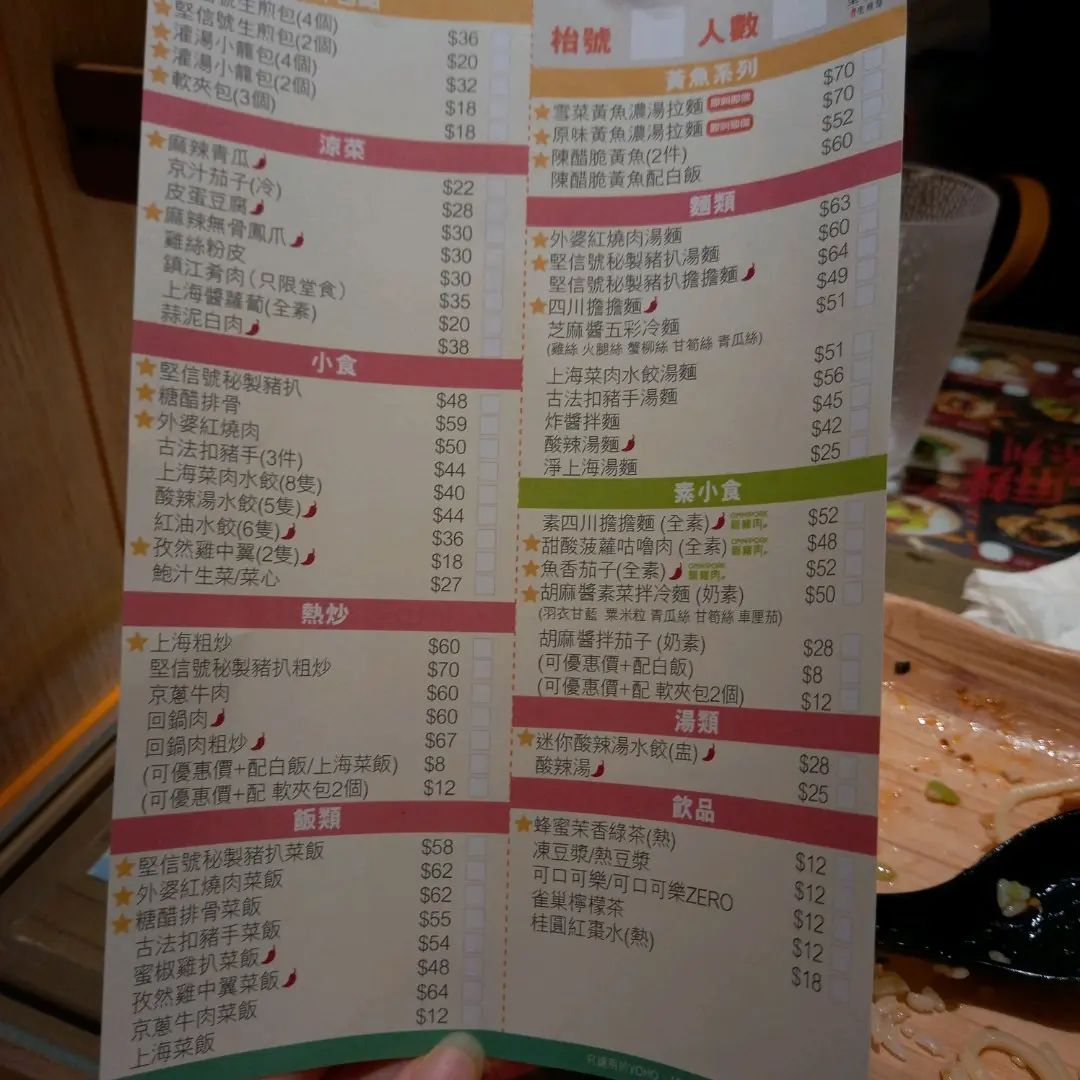 堅信號生煎包(4個) $36
堅信號生煎包(2個) $20
灌湯小籠包(4個) $32
灌湯小籠包(2個) $18
軟夾包(3個) $18
涼菜
麻辣青瓜 $22
京汁茄子(冷) $28
皮蛋豆腐 $30
麻辣無骨鳳爪 $30
雞絲粉皮 $30
鎮江肴肉(只限堂食) $35
上海醬蘿蔔(全素) $20
蒜泥白肉 $38
小食
堅信號秘製豬扒 $48
糖醋排骨 $59
外婆紅燒肉 $50
古法扣豬手(3件) $44
上海菜肉水餃(8隻) $40
酸辣湯水餃(5隻) $44
紅油水餃(6隻) $36
孜然雞中翼(2隻) $18
鮑汁生菜/菜心 $27
熱炒
上海粗炒 $60
堅信號秘製豬扒粗炒 $70
京蔥牛肉 $60
回鍋肉 $60
回鍋肉粗炒 $67
(可優惠價+配白飯/上海菜飯) $8
(可優惠價+配 軟夾包2個) $12
飯類
堅信號秘製豬扒菜飯 $58
外婆紅燒肉菜飯 $62
糖醋排骨菜飯 $62
古法扣豬手菜飯 $55
蜜椒雞扒菜飯 $54
孜然雞中翼菜飯 $48
京蔥牛肉菜飯 $64
上海菜飯 $12
枱號 人數
黃魚系列
雪菜黃魚濃湯拉麵 即叫即做 $70
原味黃魚濃湯拉麵 即叫即做 $70
陳醋脆黃魚(2件) $52
陳醋脆黃魚配白飯 $60
麵類
外婆紅燒肉湯麵 $63
堅信號秘製豬扒湯麵 $60
堅信號秘製豬扒擔擔麵 $64
四川擔擔麵 $49
芝麻醬五彩冷麵 $51
(雞絲 火腿絲 蟹柳絲 甘筍絲 青瓜絲)
上海菜肉水餃湯麵 $51
古法扣豬手湯麵 $56
炸醬拌麵 $45
酸辣湯麵 $42
淨上海湯麵 $25
素小食
素四川擔擔麵 (全素) OMNIPORK 新豬肉 $52
甜酸菠蘿咕嚕肉 (全素) OMNIPORK 新豬肉 $48
魚香茄子(全素) OMNIPORK 新豬肉 $52
胡麻醬素菜拌冷麵 (奶素) $50
(羽衣甘藍 粟米粒 青瓜絲 甘筍絲 車厘茄)
胡麻醬拌茄子 (奶素) $28
(可優惠價+配白飯) $8
(可優惠價+配 軟夾包2個) $12
湯類
迷你酸辣湯水餃(盅) $28
酸辣湯 $25
飲品
蜂蜜茉香綠茶(熱) $12
凍豆漿/熱豆漿 $12
可口可樂/可口可樂ZERO $12
雀巢檸檬茶 $12
桂圓紅棗水(熱) $18